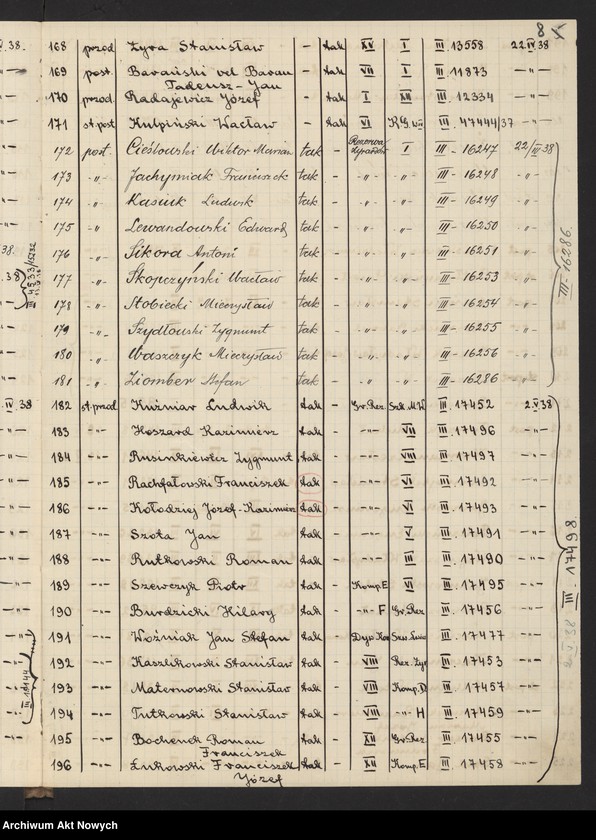 8
V.38. 168 przod. Żyra Stanisław - tak XV I III. 13558 22.IV.38
169 post. Barański vel Baran - tak VII I III. 11873 -"-
Tadeusz-Jan
170 przod. Radajewicz Józef - tak I XII III. 12334 -"-
171 st.post Kulpiński Wacław - tak VI K.G. III. 47444/37 -"-
172 post. Cieślowski Wiktor Marian tak - Rezerwa I III - 16247 22/III 38
173 -"- Jachymiak Franciszek tak - -"- -"- III - 16248 -"-
174 -"- Kasiuk Ludwik tak - -"- -"- III - 16249 -"-
175 -"- Lewandowski Edward tak - -"- -"- III - 16250 -"-
176 -"- Sikora Antoni tak - -"- -"- III - 16251 -"-
177 -"- Skopczyński Wacław tak - -"- -"- III - 16253 -"-
178 -"- Stobiecki Mieczysław tak - -"- -"- III - 16254 -"-
179 -"- Szydłowski Zygmunt tak - -"- -"- III - 16255 -"-
180 -"- Waszczyk Mieczysław tak - -"- -"- III - 16256 -"-
181 -"- Ziomber Stefan tak - -"- -"- III - 16286 -"-
III - 16286
IV.38 182 st.przod. Kuźniar Ludwik tak - Gr.Rez III. 17452 2.V.38
183 -"- Hoszard Kazimierz tak - -"- VII III. 17496 -"-
184 -"- Rusinkiewicz Zygmunt tak - -"- VIII III. 17497 -"-
185 -"- Rachfałowski Franciszek tak - -"- VI III. 17492 -"-
186 -"- Kołodziej Józef-Kazimierz tak - -"- VI III. 17493 -"-
187 -"- Szota Jan tak - -"- V III. 17491 -"-
188 -"- Rutkowski Roman tak - -"- III III. 17490 -"-
189 -"- Szewczyk Piotr tak - Komp.E VI III. 17495 -"-
190 -"- Burdzicki Hilary tak - -"- F Gr.Rez III. 17456 -"-
191 -"- Woźniak Jan Stefan tak - III. 17477 -"-
192 -"- Kaszlikowski Stanisław tak - VIII Rez. III. 17453 -"-
193 -"- Maternowski Stanisław tak - VIII Komp.D III. 17457 -"-
194 -"- Tutkowski Stanisław tak - VIII -"- H III. 17459 -"-
195 -"- Bochenek Roman tak - XII Gr.Rez III. 17455 -"-
Franciszek
196 -"- Łukowski Franciszek tak - XII Komp.E III. 17458 -"-
Józef
III. 17498
2.V.38
Archiwum Akt Nowych